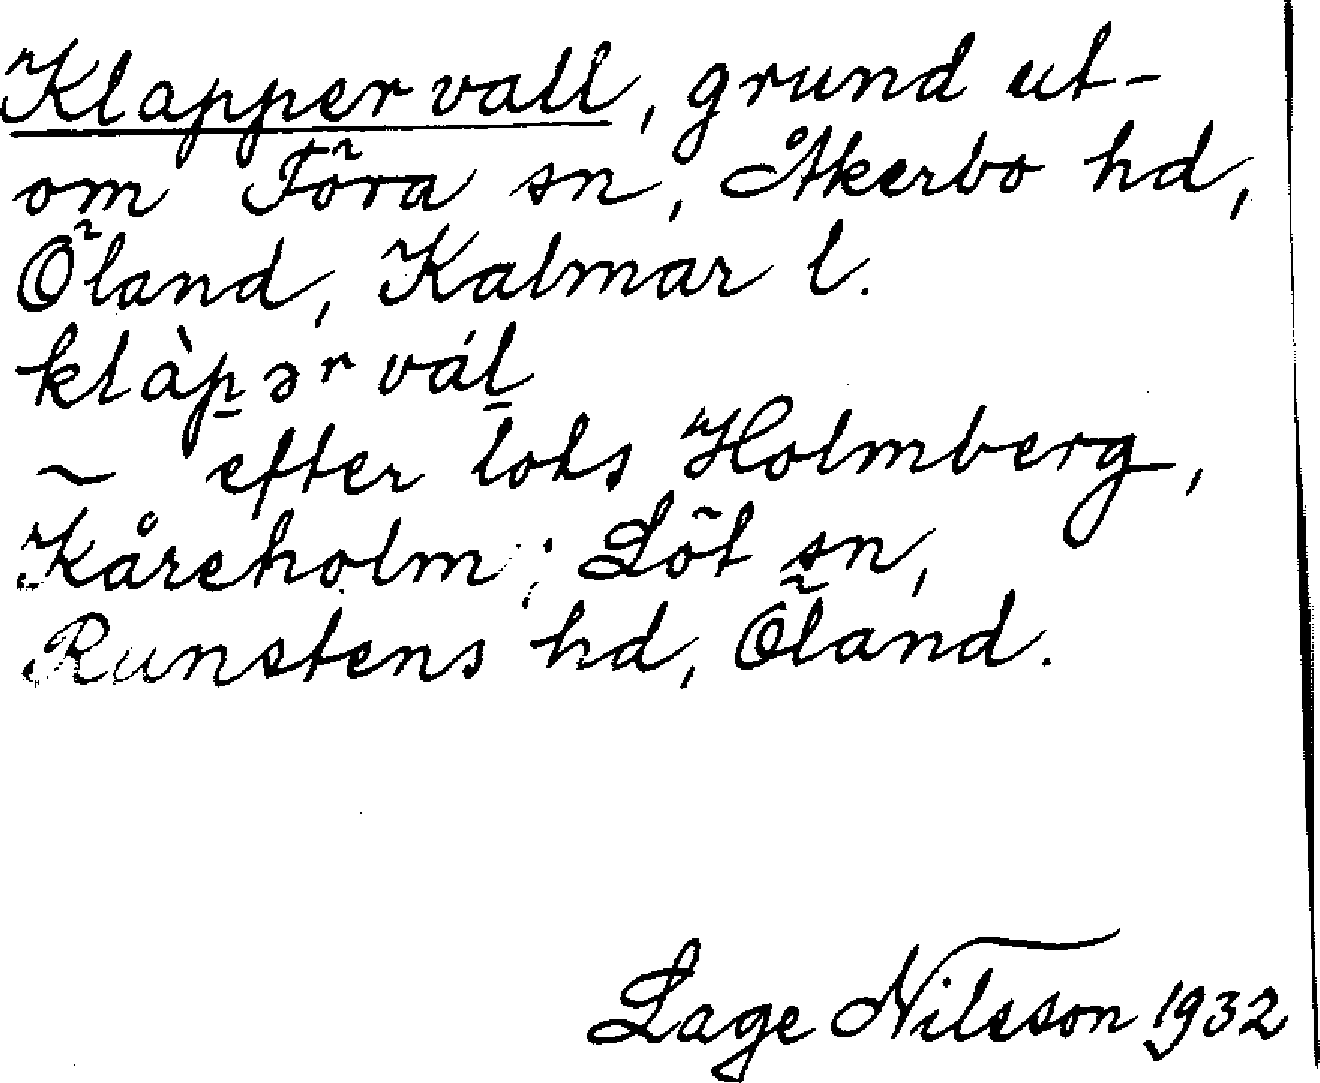 Klappervall, grund ut-
om Föra sn, Åkerbo hd,
Öland, Kalmar l.
klàp̲ərvál̲
~ efter lots Holmberg,
Kåreholm; Löt sn,
Runstens hd, Öland.
Lage Nilsson 1932